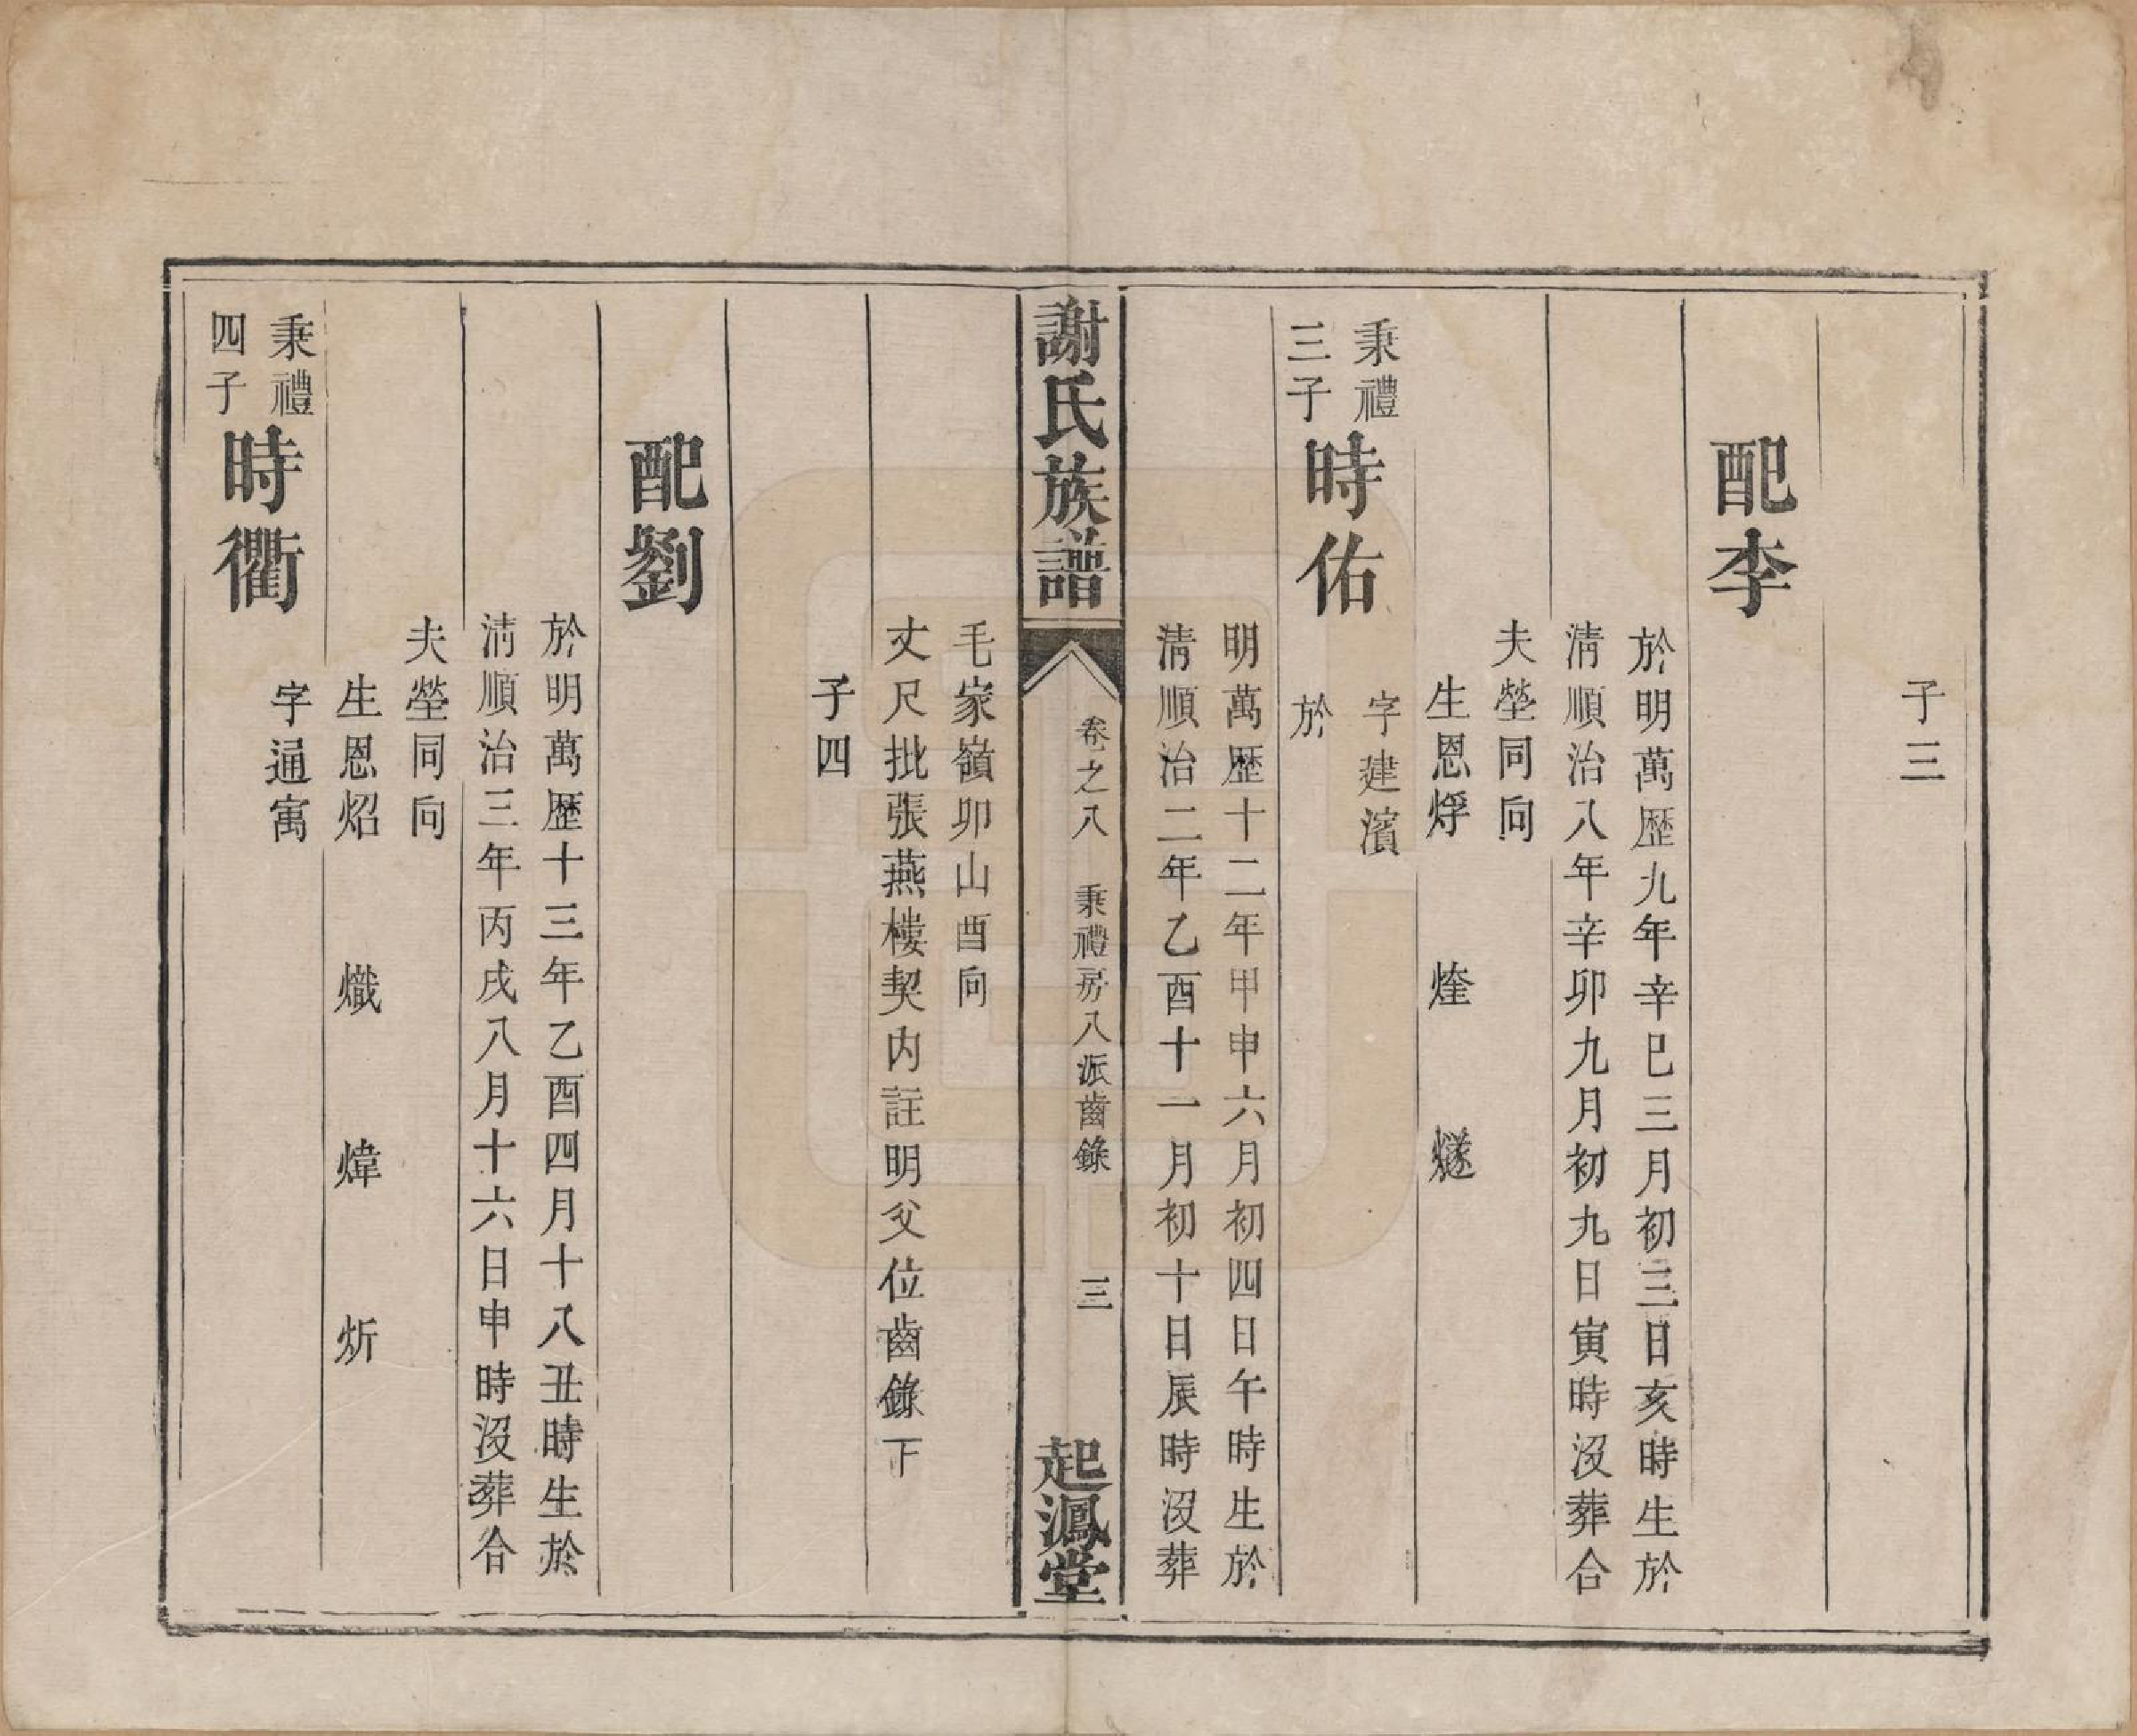 子三
配李
於明萬歷九年辛巳三月初三日亥時生於
淸順治八年辛卯九月初九日寅時沒葬合
夫塋同向
生恩烰 烾 燧
秉禮
三子
時佑
字建濱
於
明萬歷十二年甲申六月初四日午時生於
淸順治二年乙酉十一月初十日辰時沒葬
謝氏族譜
卷之八 秉禮房八派齒錄 三
起鳳堂
毛家嶺卯山酉向
丈尺批張燕樓契内註明父位齒錄下
子四
配劉
於明萬歷十三年乙酉四月十八丑時生於
淸順治三年丙戌八月十六日申時沒葬合
夫塋同向
生恩炤 熾 煒 炘
秉禮
四子
時衢
字通寓